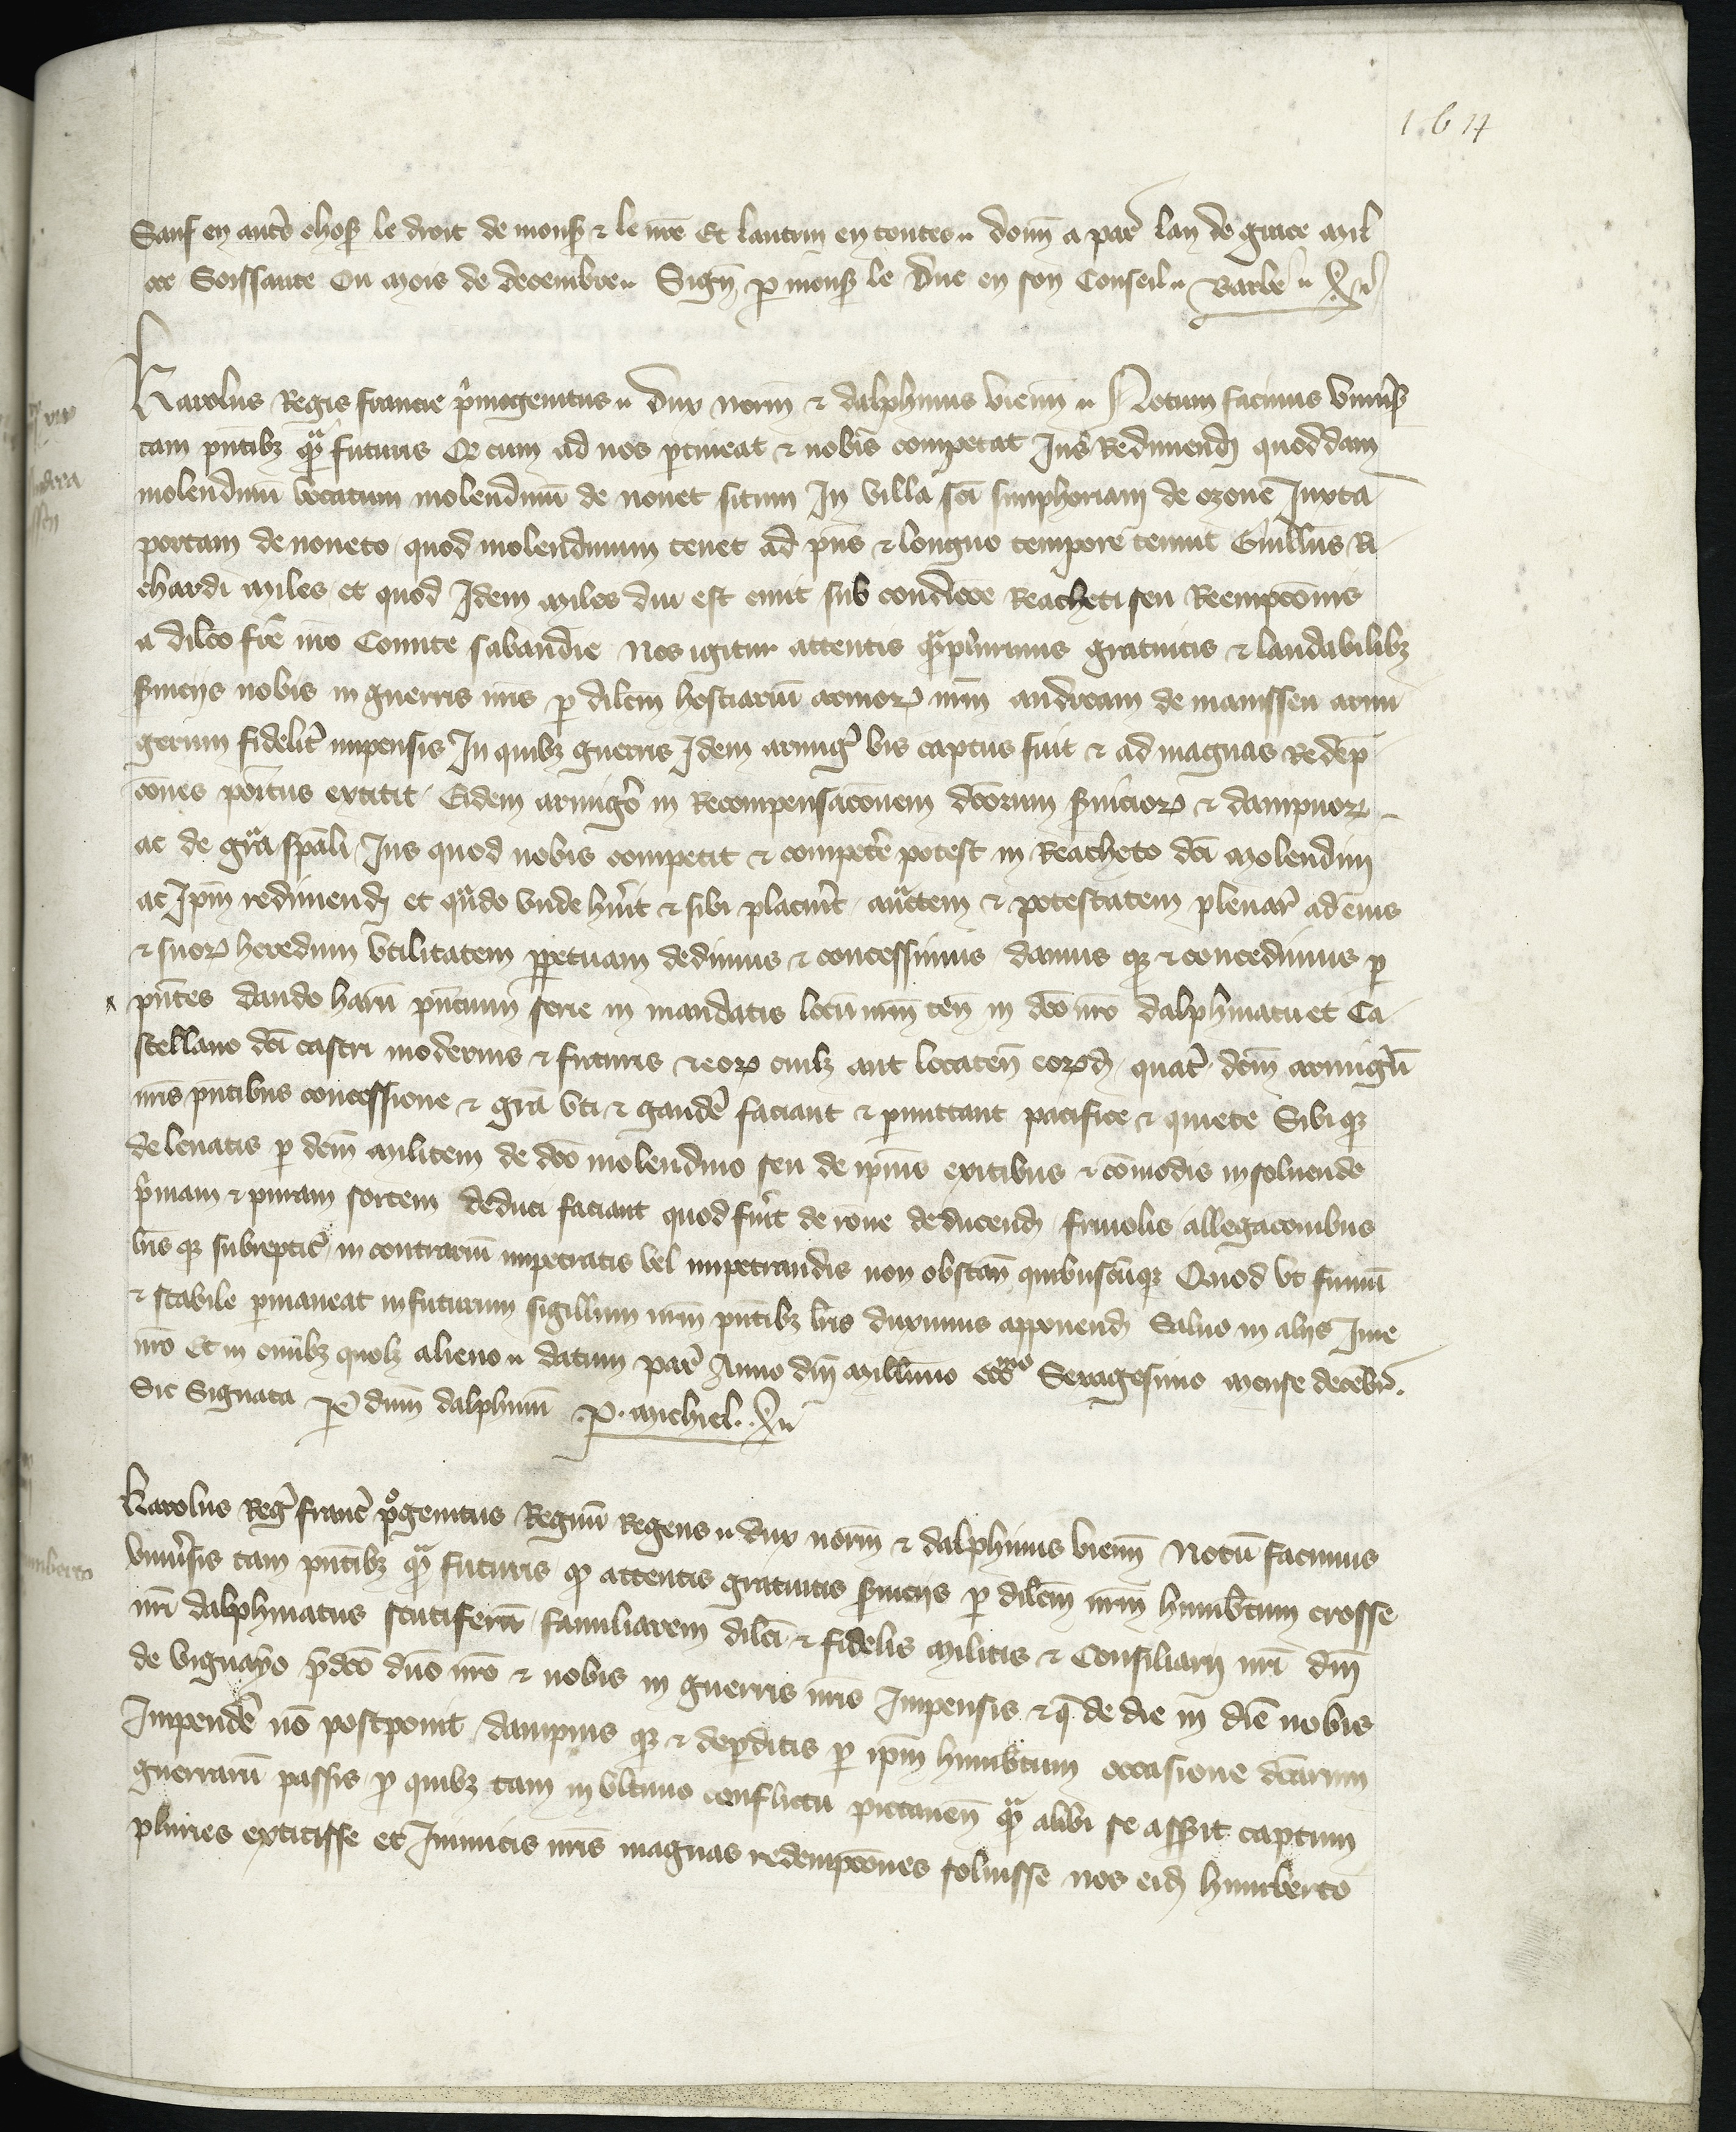 164
Sauf en autres chos le droit de mons & le nre Et lautruy en toutes Donn a par lan de grace mil
ccc Soissante Ou mois de decembre Sign p mons le Duc en son Conseil Barbe
Karolus Regis francie pmogenitus Dux norm & dalphinus vienn Notum facimus vnius
tam pntibz qm futuris Qz cum ad nos ptineat & nobis competat Jus Redimend quoddam
molendinu vocatum molendinu de nonet situm In villa sci simphoriani de ozone Iuxta
portam de noneto quod molendinum tenet ad pns & longuo tempore tenuit Guillus Ri
chardi miles et quod Idem miles diu est emit sub condicoe Reacheti seu Reempconis
a dilco fre nro Comite sabaudie Nos igitur attentis qmplurimis gratuitis & laudabilibz
seruicijs nobis in guerris nris p dilcm hostiariu armor nrm andream de manissen armi
gerum fidelit impensis In quibz guerris Idem armig bis captus fuit & ad magnas Redemp
cones positus extitit Eidem armigo in Recompensaconem dcorum seruicior & dampnor
ac de gra spali Jus quod nobis competit & compete potest in Reacheto dci molendini
ac Ipm redimend et qndo vnde huit & sibi placuit auctem & potestatem plenar ad eius
& suor heredum vtilitatem ppetuam dedimus & concessimus damus qz & concedimus p
pntes dando haru pncium serie in mandatis locu nrm ten in dco nro dalphinatu et Ca
stellano dci castri modernis & futuris & eor cuilz aut locaten eord quat dcm armigu
nris pntibus concessione & gra vti & gaude faciant & pmittant pacifice & quiete Sibi qz
de leuatis p dcm militem de dco molendino seu de ipius exitibus & comodis in soluendo
pmam & puram sortem deduci faciant quod fuit de rone deducend friuolis allegaconibus
lris qz subreptic in contrariu impetratis vel impetrandis non obstan quibuscuqz Quod vt firmu
& stabile pmaneat in futurum sigillum nrm pntibz lris duximus apponend Saluo in alijs Jure
nro Et in omibz quolz alieno datum par Anno dni millimo ccco Sexagesimo mense decebr
Sic Signata P dnm dalphinu P. michiel
Karolus Reg franc pogenitus Regnu Regens dux norm & dalphinus vienn Notu facimus
vniusis tam pntibz qm futuris qz attentis gratuitis seruicijs p dilcm nrm humbtum crosse
nri dalphinatus scutiferu familiarem dilci & fidelis militis & Consiliarij nri dni
de vignayo pdco dno nro & nobis in guerris nris Impensis & q de die in die nobis
Impende no postponit dampnis qz & depditis p ipm humbtum occasione dcarum
guerraru passis p quibz tam in vltimo conflictu pictauen qm alibi se asserit captum
pluries extitisse et Inimicis nris magnas redempcones soluisse nos eid humberto